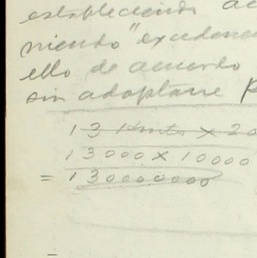 estableciendo ac
niendo "excedenc
ello de acuerdo
sin adoptarse p
13 Kmts x 20
13000 x 10000
= 130000000